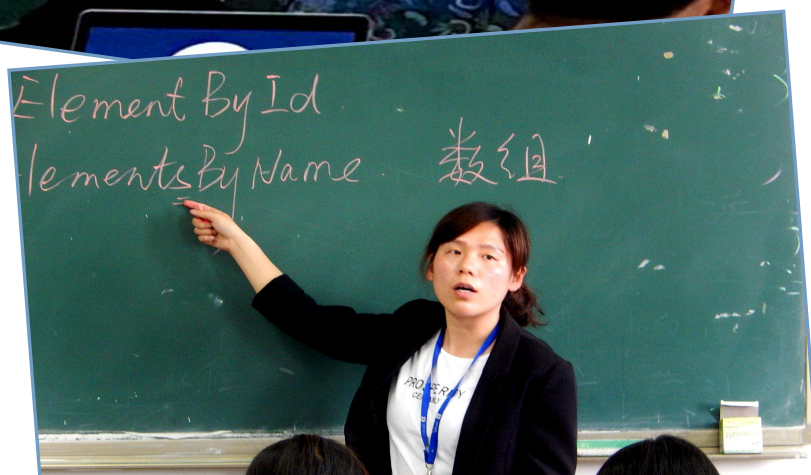 Element By Id
lements By Name 数组
PROSPERITY